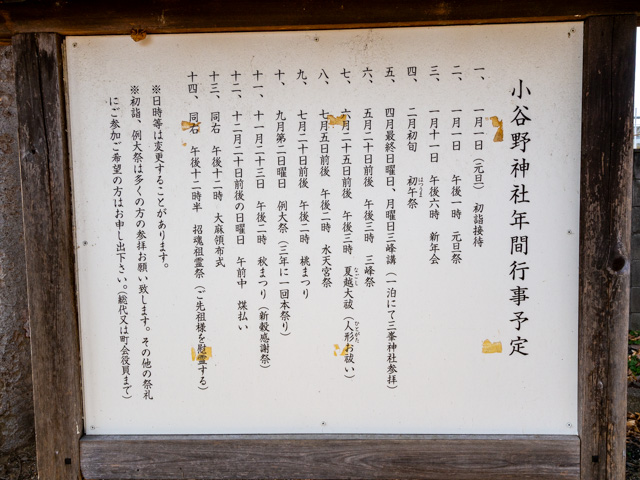 小谷野神社年間行事予定
一、一月一日（元旦）初詣接待
二、一月一日　午後一時　元旦祭
三、一月十一日　午後六時　新年会
四、二月初旬　初午祭
五、四月最終日曜日、月曜日三峰講（一泊にて三峯神社参拝）
六、五月二十日前後　午後三時　三峰祭
七、六月二十五日前後　午後三時　夏越大祓（人形お祓い）
八、七月五日前後　午後二時　水天宮祭
九、七月二十日前後　午後二時　桃まつり
十、九月第二日曜日　例大祭（三年に一回本祭り）
十一、十一月二十三日　午後二時　秋まつり（新穀感謝祭）
十二、十二月二十日前後の日曜日　午前中　煤払い
十三、同右　午後十二時　大麻頒布式
十四、同右　午後十二時半　招魂祖霊祭（ご先祖様を慰霊する）
※日時等は変更することがあります。
※初詣、例大祭は多くの方の参拝お願い致します。その他の祭礼
にご参加ご希望の方はお申し出下さい。（総代又は町会役員まで）